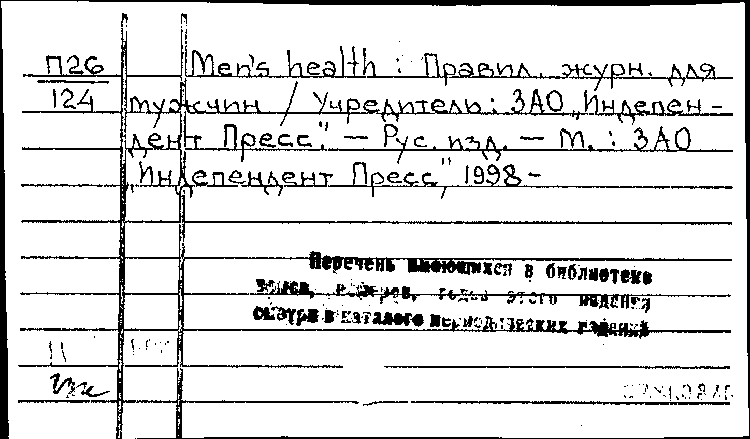 П26
124
Men's health : Правил. журн. для
мужчин / Учредитель: ЗАО „Индепен-
дент Пресс". — Рус. изд. — М. : ЗАО
„Индепендент Пресс", 1998 -
Перечень имеющихся в библиотеке
томов, номеров, годов этого издания
смотри в каталоге периодических изданий